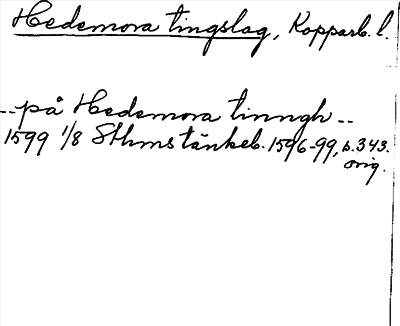 Hedemora tingslag, Kopparb. l.
-- på Hedemora tinngh --
1599 1/8 Sthms tänkeb. 1596-99, s. 343.
orig.